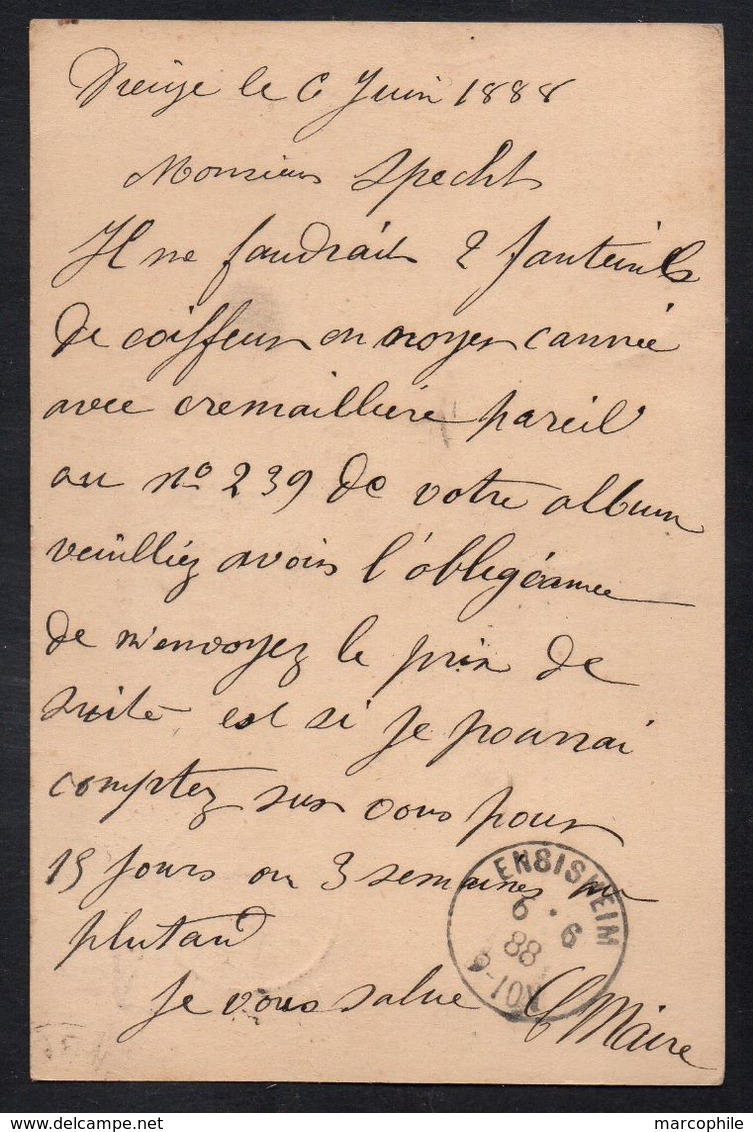 Dieuze le 6 Juin 1888
Monsieur Specht
Il me faudrait 2 fauteuils
de coiffeur en noyer cannée
avec cremaillière pareil
au no 239 de votre album
veuilliez avoir l'obligéance
de m'envoyez le prix de
suite est si je pourrai
comptez sur vous pour
15 jours ou 3 semaines au
plutard
Je vous salue
Maire
ENSISHEIM
6 . 6
88
marcophile